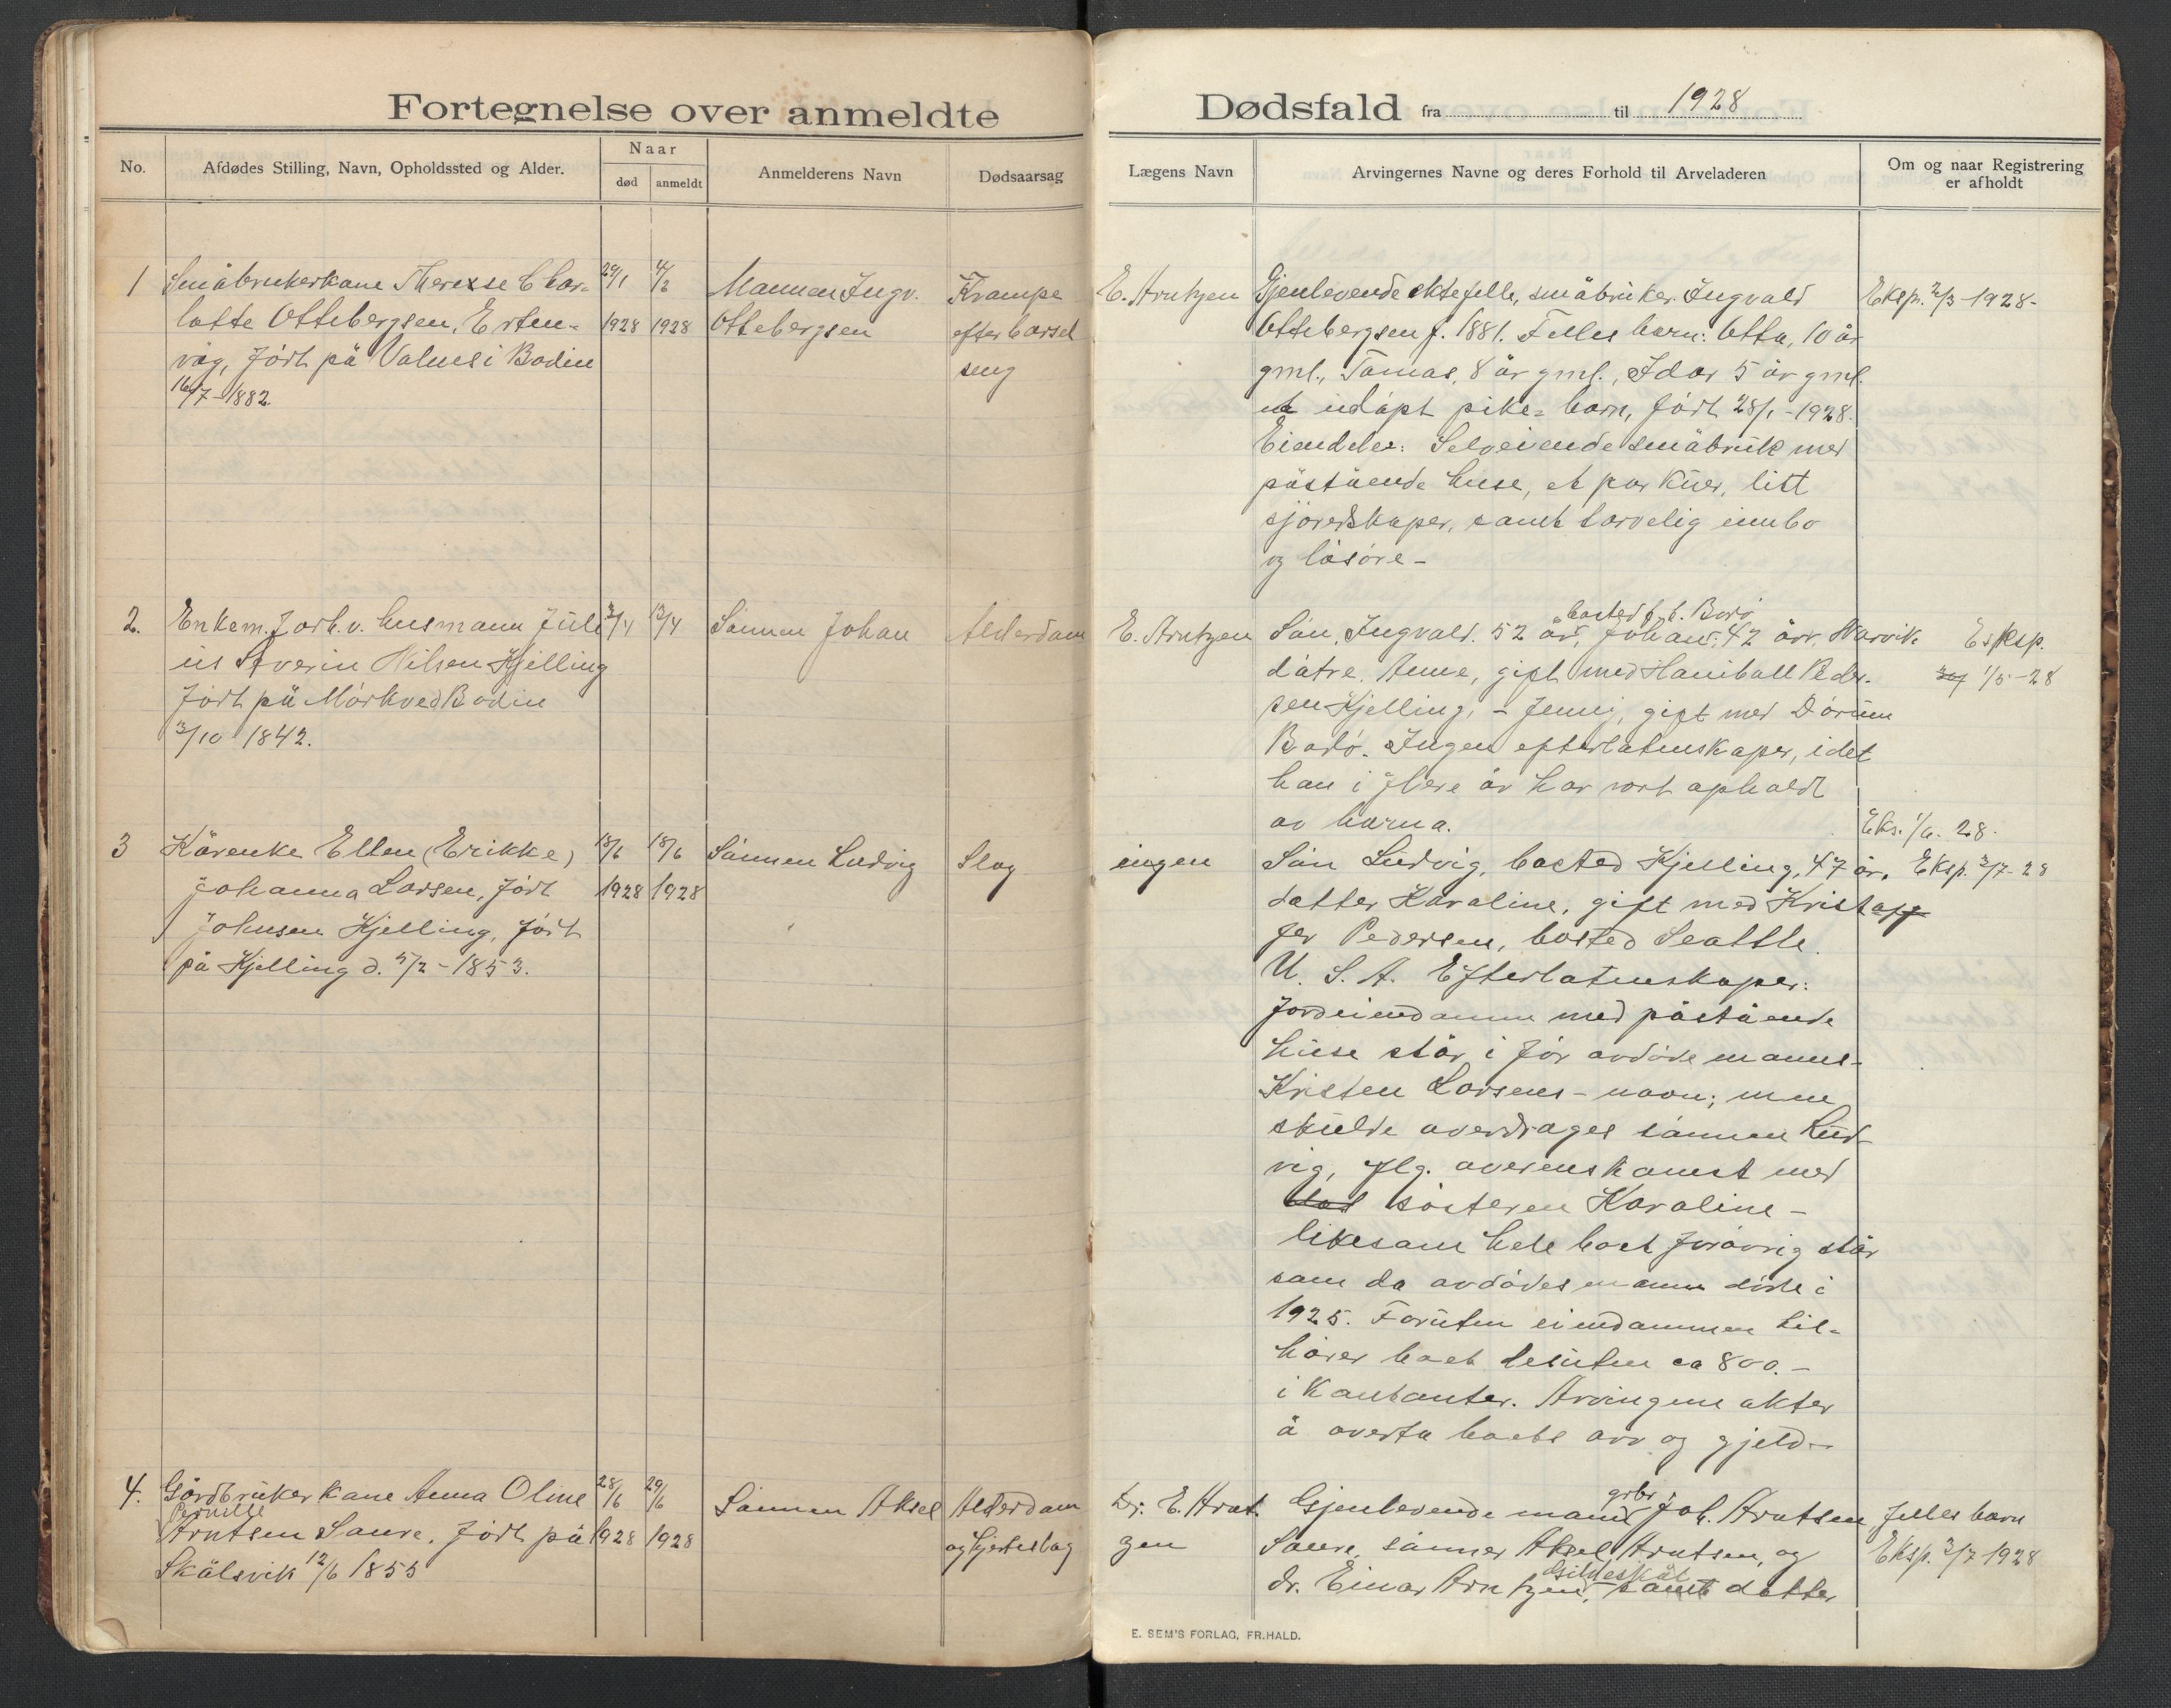 Fortegnelse over anmeldte
No.
Afdødes Stilling, Navn, Opholdssted og Alder.
Naar
død
anmeldt
Anmelderens Navn
Dødsaarsag
1
Småbrukerkone Therese Char-
lotte Ottebergsen, Erten-
våg, født på Valnes i Bodin
16/7-1882
29/1
1928
4/2
1928
Mannen Ingv.
Ottebergsen
Krampe
efter barsel
seng
2.
Enkem. Forh.v. husmann Juli
us Severin Nilsen Kjelling
født på Mørkved Bodin
3/10 1842.
3/4
13/4
Sønnen Johan
Alderdom
3
Kårenke Ellen (Erikke)
Johanna Larsen, født
Johnsen Kjelling, født
på Kjelling d. 5/2-1853.
18/6
1928
18/6
1928
Sønnen Ludvig
Slag
4.
Gårdbrukerkone Anna Oline
Pernille
Arntsen Saure, født på
Skålsvik 12/6 1855
28/6
1928
29/6
1928
Sønnen Aksel
Alderdom
og hjerteslag
Dødsfald fra til 1928
Lægens Navn
Arvingernes Navne og deres Forhold til Arveladeren
Om og naar Registrering
er afholdt
E. Arntzen
Gjenlevende ektefelle, småbruker Ingvald
Ottebergsen f. 1881. Felles barn: Otto, 10 år
gml., Tomas, 8 år gml., Idar 5 år gml.
et udøpt pike-barn, født 28/1-1928.
Eiendeler: Selveiende småbruk med
påstående huse, et par kuer, litt
sjøredskaper, samt tarvelig innbo
og løsøre-
Eksp. 2/3-1928-
E. Arntzen
bosted Bodø
Søn, Ingvald. 52 år, Johan: 42 år, Narvik
døtre. Anne, gift med Haniball Peder-
sen Kjelling, - Jenny, gift med
Bodø. Ingen efterlatenskaper, idet
han i flere år har vort opholdt
av barna.
Eksp.
1/5-28
Eks. 1/6. 28.
ingen
Søn Ludvig, bosted Kjelling, 47 år.
datter Karoline, gift med Kristof
fer Pedersen, bosted Seattle
U. S. A. Efterlatenskaper:
Jordeiendommen med påstående
huse står i før avdøde manns-
Kristen Larsens - navn; men
skulde overdrages sønnen Lud-
vig, iflg. overenskomst med
søsteren Karoline -
likesom hele boet forøvrig står
som da avdødes mann døde i
1925. Foruten eiendommen til-
hører boet desuten ca 800.-
i kontanter. Arvingene akter
å overta boets arv og gjeld.-
Eksp. 2/7-28
Dr. E. Arnt
zen
Gjenlevende mann grbr. Joh. Arntsen
Saure, sønner Aksel Arntsen, og
Gildeskål
dr. Einar Arntzen, samt datter
felles barn
Eksp. 2/7 1928
E. SEM'S FORLAG, FR.HALD.